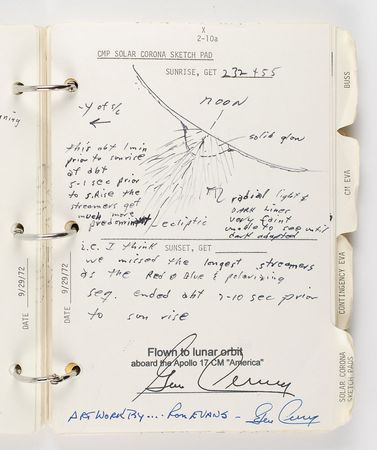 X
2-10a
CMP SOLAR CORONA SKETCH PAD
SUNRISE, GET 232+55
MOON
-Y of S/C
solid glow
this abt 1 min
prior to sunrise
at abt
5-1 sec prior
to S. Rise the
streamers got
much more
predominant
Ecliptic
radial light &
DARK Lines
very faint
unable to see until
dark adapted
i.e. I think SUNSET, GET
we missed the longest streamers
as the Red & Blue & polarizing
seq. ended abt 7-10 sec prior
to sun rise
Flown to lunar orbit
aboard the Apollo 17 CM "America"
Gene Cernan
ART WORK By.... Ron EVANS - Gene Cernan
DATE 9/29/72
DATE 9/29/72
BUSS
CM EVA
CONTINGENCY EVA
SOLAR CORONA
SKETCH PADS